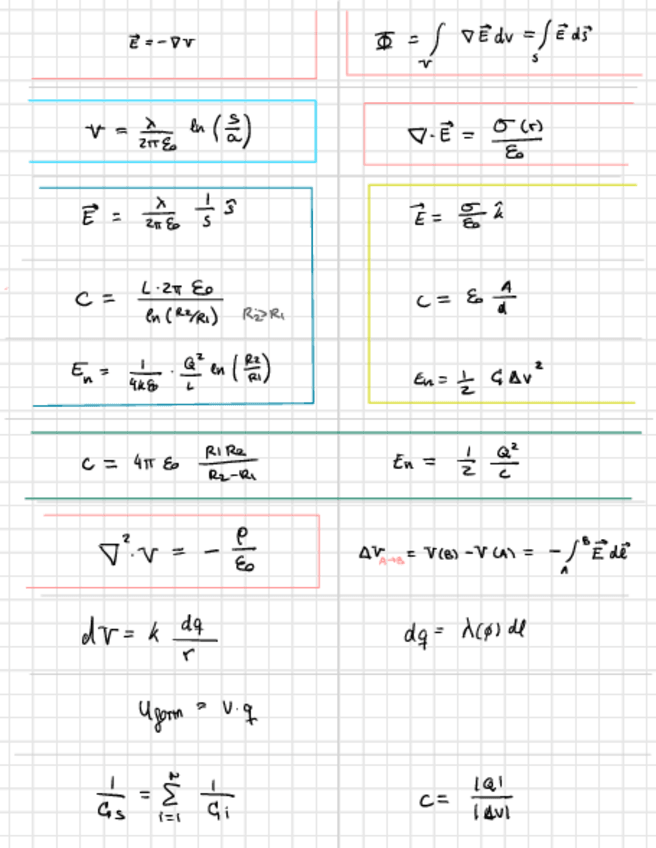 E⃗ = -∇V
Φ = ∫_V ∇E⃗ dv = ∫_S E⃗ ds⃗
V = λ/(2πε₀) ln(s/a)
∇·E⃗ = σ(r)/ε₀
E⃗ = λ/(2πε₀) 1/s ŝ
E⃗ = σ/ε₀ k̂
C = L·2π ε₀/ln(R2/R1) R2>R1
C = ε₀ A/d
En = 1/(4πε₀) · Q²/L ln(R2/R1)
En = 1/2 C ΔV²
C = 4π ε₀ R1R2/(R2-R1)
En = 1/2 Q²/C
∇²·V = - ρ/ε₀
ΔV_A→B = V(B) - V(A) = -∫_A^B E⃗ dl⃗
dV = k dq/r
dq = λ(φ) dl
Uform = V·q
1/Cs = Σ_{i=1}^{N} 1/Ci
C = |Q|/|ΔV|